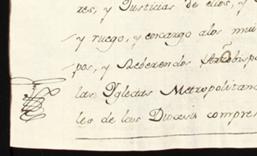 res, y Justicias de ellos, y
y ruego, y encargo alos mui
pos, y Reberendos Arzobisp
las Yglecias Metropolitan
leo de las Diocesis compre